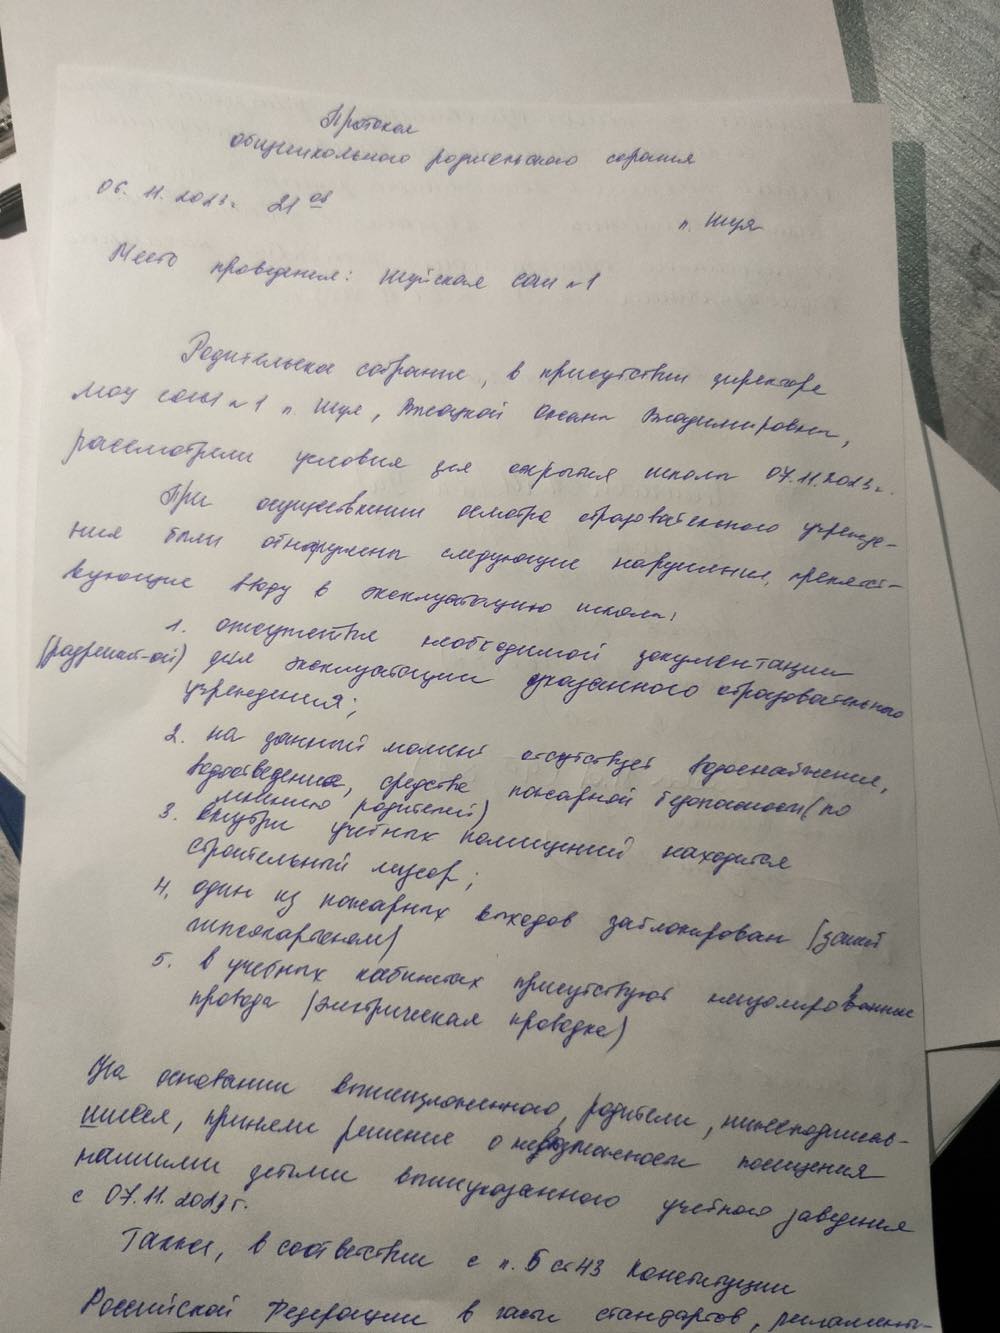 Протокол
общешкольного родительского собрания
06.11.2023г. 21 08
п. Шуя
Место проведения: Шуйская СОШ №1
Родительское собрание, в присутствии директора
МОУ СОШ №1 п. Шуя, Оксаны Владимировны,
рассмотрели условия для открытия школы 07.11.2023г.
При осуществлении осмотра образовательного учрежде-
ния были обнаружены следующие нарушения, препятст-
вующие вводу в эксплуатацию школы:
1. отсутствия необходимой документации
(разрешит-ой) для эксплуатации указанного образовательного
учреждения;
2. на данный момент отсутствует водоснабжение,
водоотведение, средства пожарной безопасности (по
мнению родителей)
3. внутри учебных помещений находится
строительный мусор;
4. один из пожарных выходов заблокирован (зашит
гипсокартоном)
5. в учебных кабинетах присутствуют неизолированные
провода (электрическая проводка)
На основании вышеизложенного, родители, нижеподписав-
шиеся, приняли решение о невозможности посещения
нашими детьми вышеуказанного учебного заведения
с 07.11.2023г.
Также, в соответствии с п. 5 ст 43 Конституции
Российской Федерации в части стандартов, регламенти-